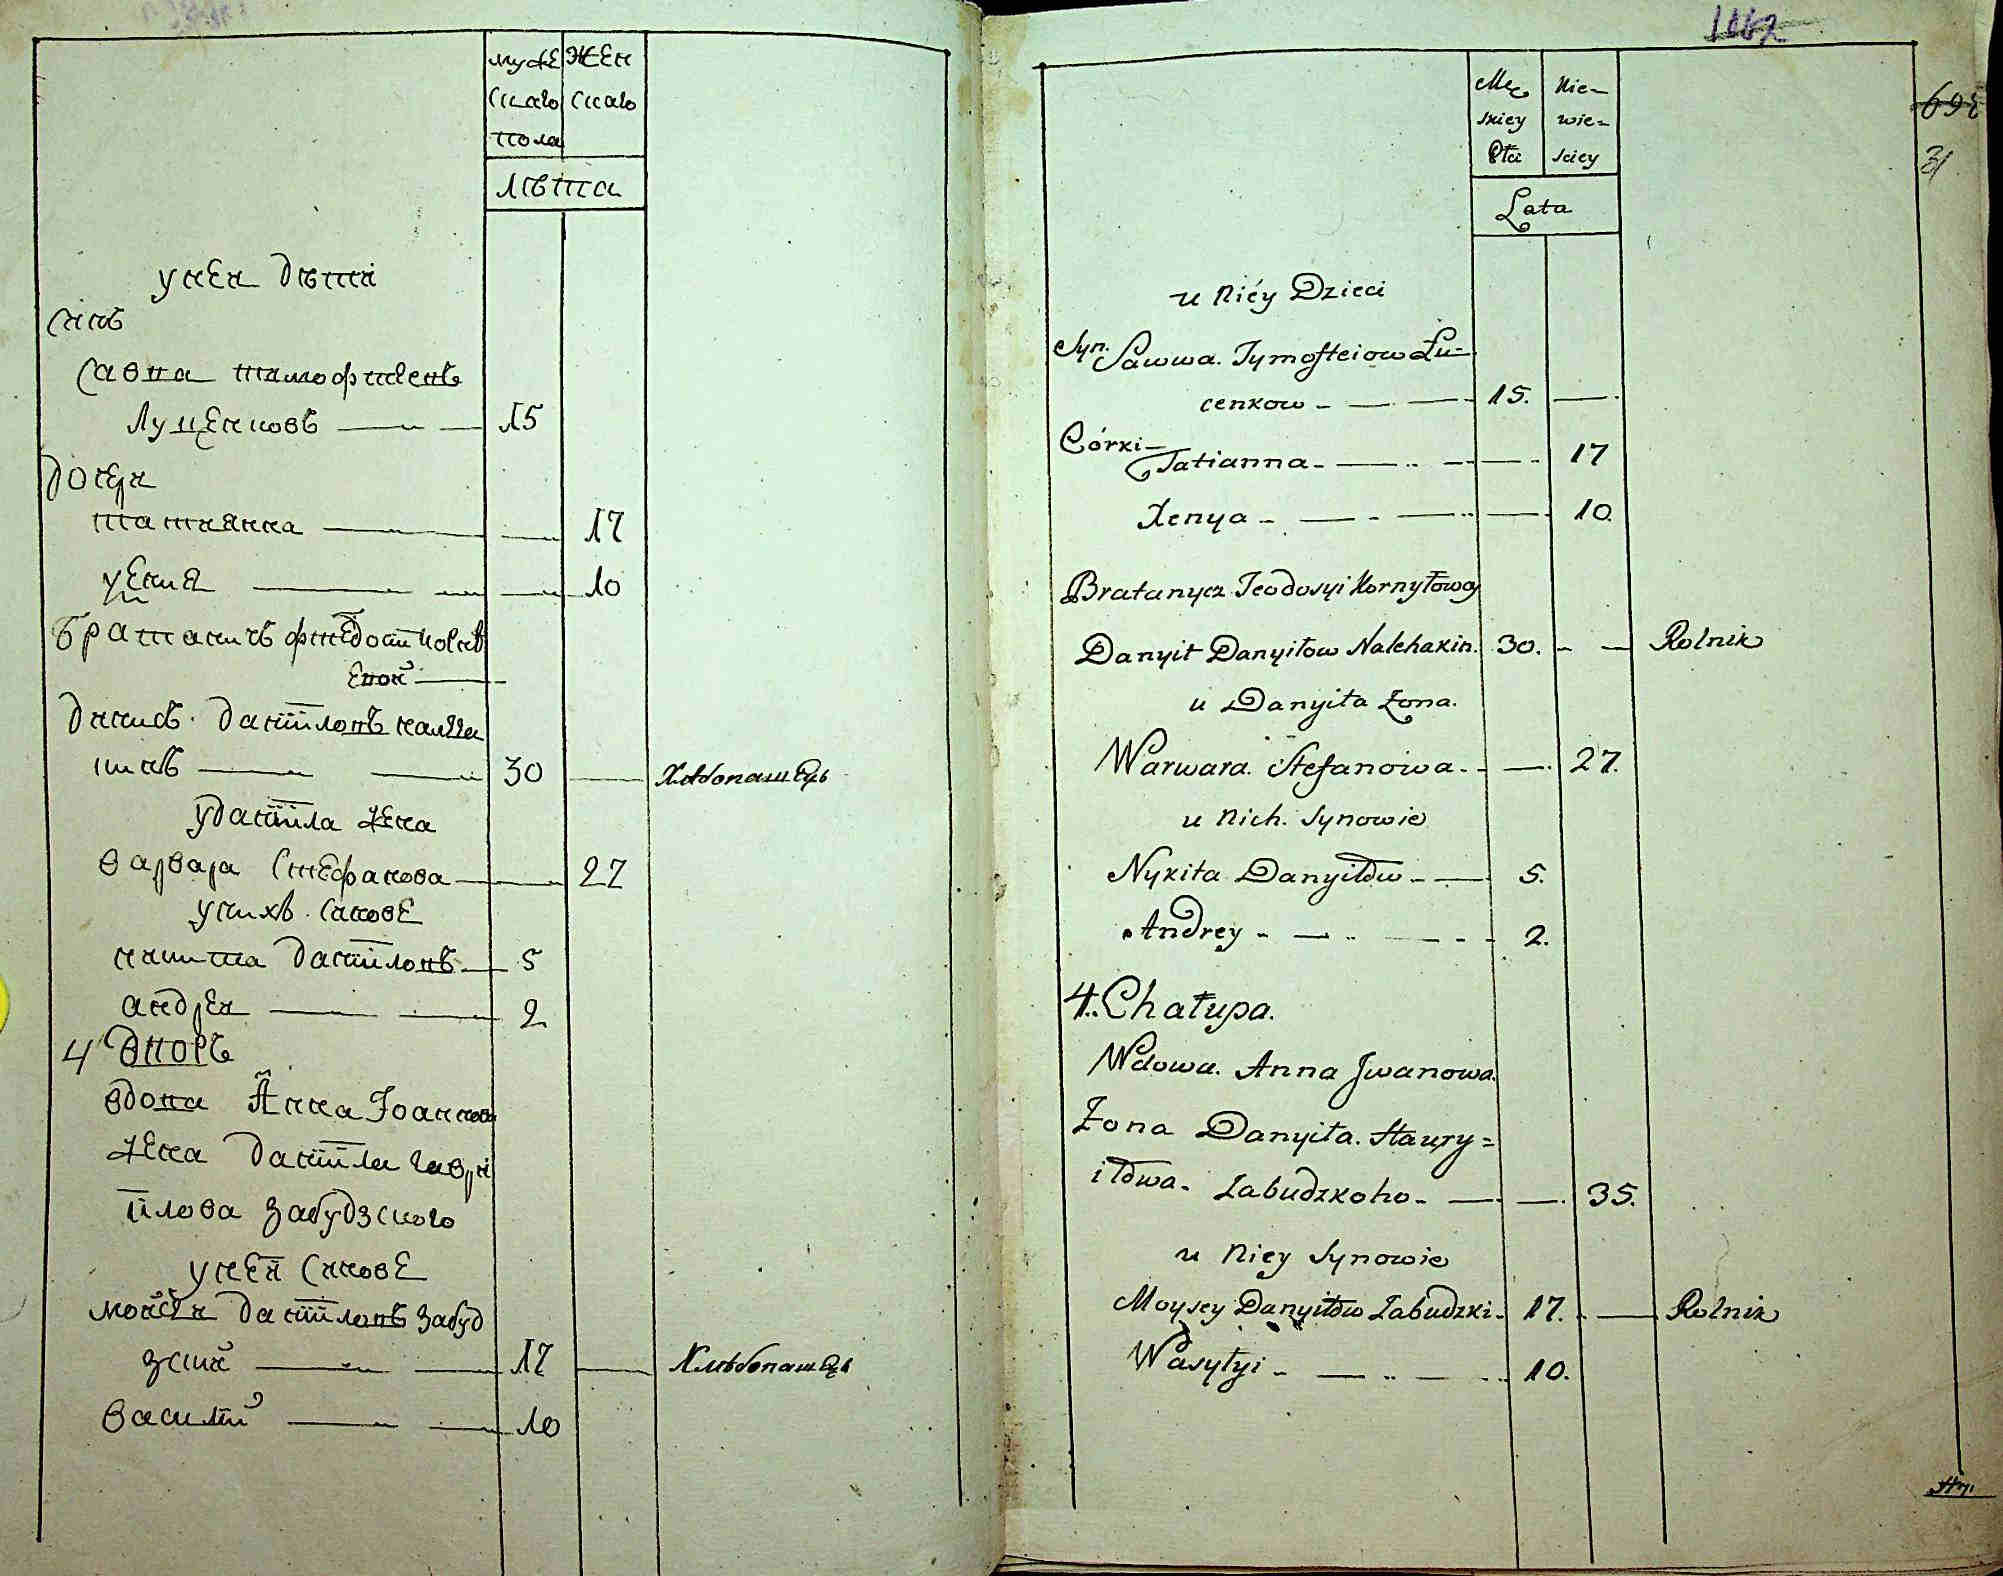 муже жен
скаго скаго
пола
лѣта
у неи дѣти
синъ
Савва тимофѣевъ
Луценковъ 15
дочери
татианна 17
ѯения 10
братаничъ
30 Хлѣбопашецъ
у даниила жена
варвара Стефанова 27
у нихъ синове
никита данииловъ 5
андреи 2
4 дворъ
вдова Анна Іоаннова
жена даниила гаври
илова забудзского
у неи синове
моисеи данииловъ забуд
зский 17 Хлѣбопашецъ
василий 10
1162
698
31
Męs Nie-
skiey wie-
Płci sciey
Lata
u Niéy Dzieci
Syn. Sawwa. Tymofteiow Łu-
cenkow 15.
Córki Tatianna 17
Xenya 10.
Bratanycz Teodosyi Kornyłowoy
Danyił Danyiłow Nalehakin. 30. Rolnik
u Danyiła Żona.
Warwara. Stefanowa 27.
u Nich. Synowie
Nykita Danyiłow 5.
Andrey 2.
4. Chałupa.
Wdowa. Anna Jwanowa.
Żona Danyiła. Hawry=
iłowa. Zabudzkoho 35.
u Niey Synowie
Moysey Danyiłow Zabudzki 17. Rolnik
Wasyłyi 10.